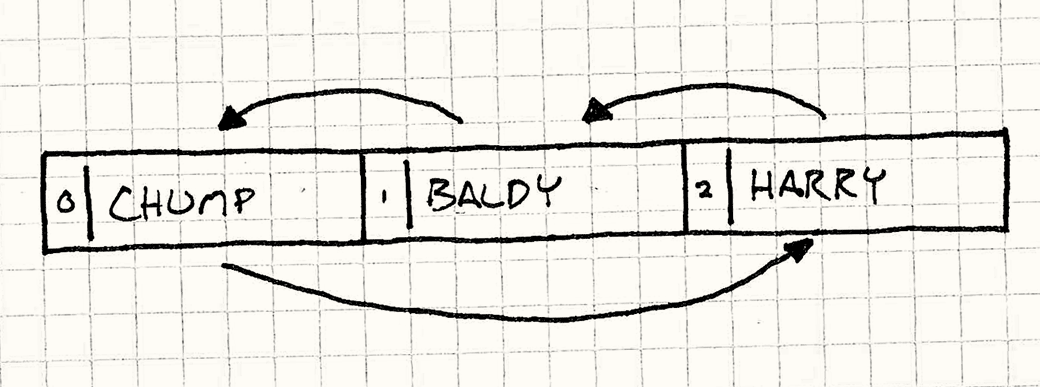 0 CHUMP 1 BALDY 2 HARRY